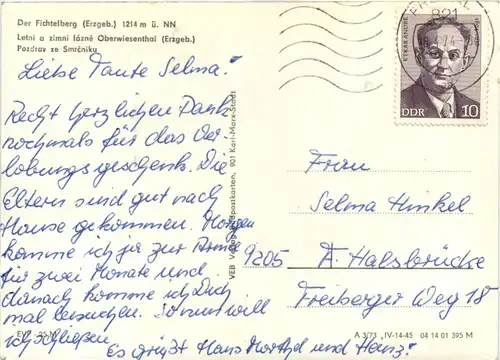 Der Fichtelberg (Erzgeb.) 1214 m ü. NN
Letní a zimní lázně Oberwiesenthal (Erzgeb.)
Pozdrav ze Smrčníku
Liebe Tante Selma!
Recht herzlichen Dank
nochmals für das Ver
lobungsgeschenk. Die
Eltern sind gut nach
Hause gekommen. Morgen
komme ich ja zur Armee
für zwei Monate und
danach komme ich Dich
mal besuchen. So nun will
ich schließen
Es grüßt Hans und Hans!
EVP
VEB Postkarten, 901 Karl-Marx-Stadt
821
74
ETKAR ANDRÉ
DDR 10
Frau
Selma Hinkel
9205 A. Halsbrücke
Freiberger Weg 18
A 3/73 IV-14-45 04 14 01 395 M